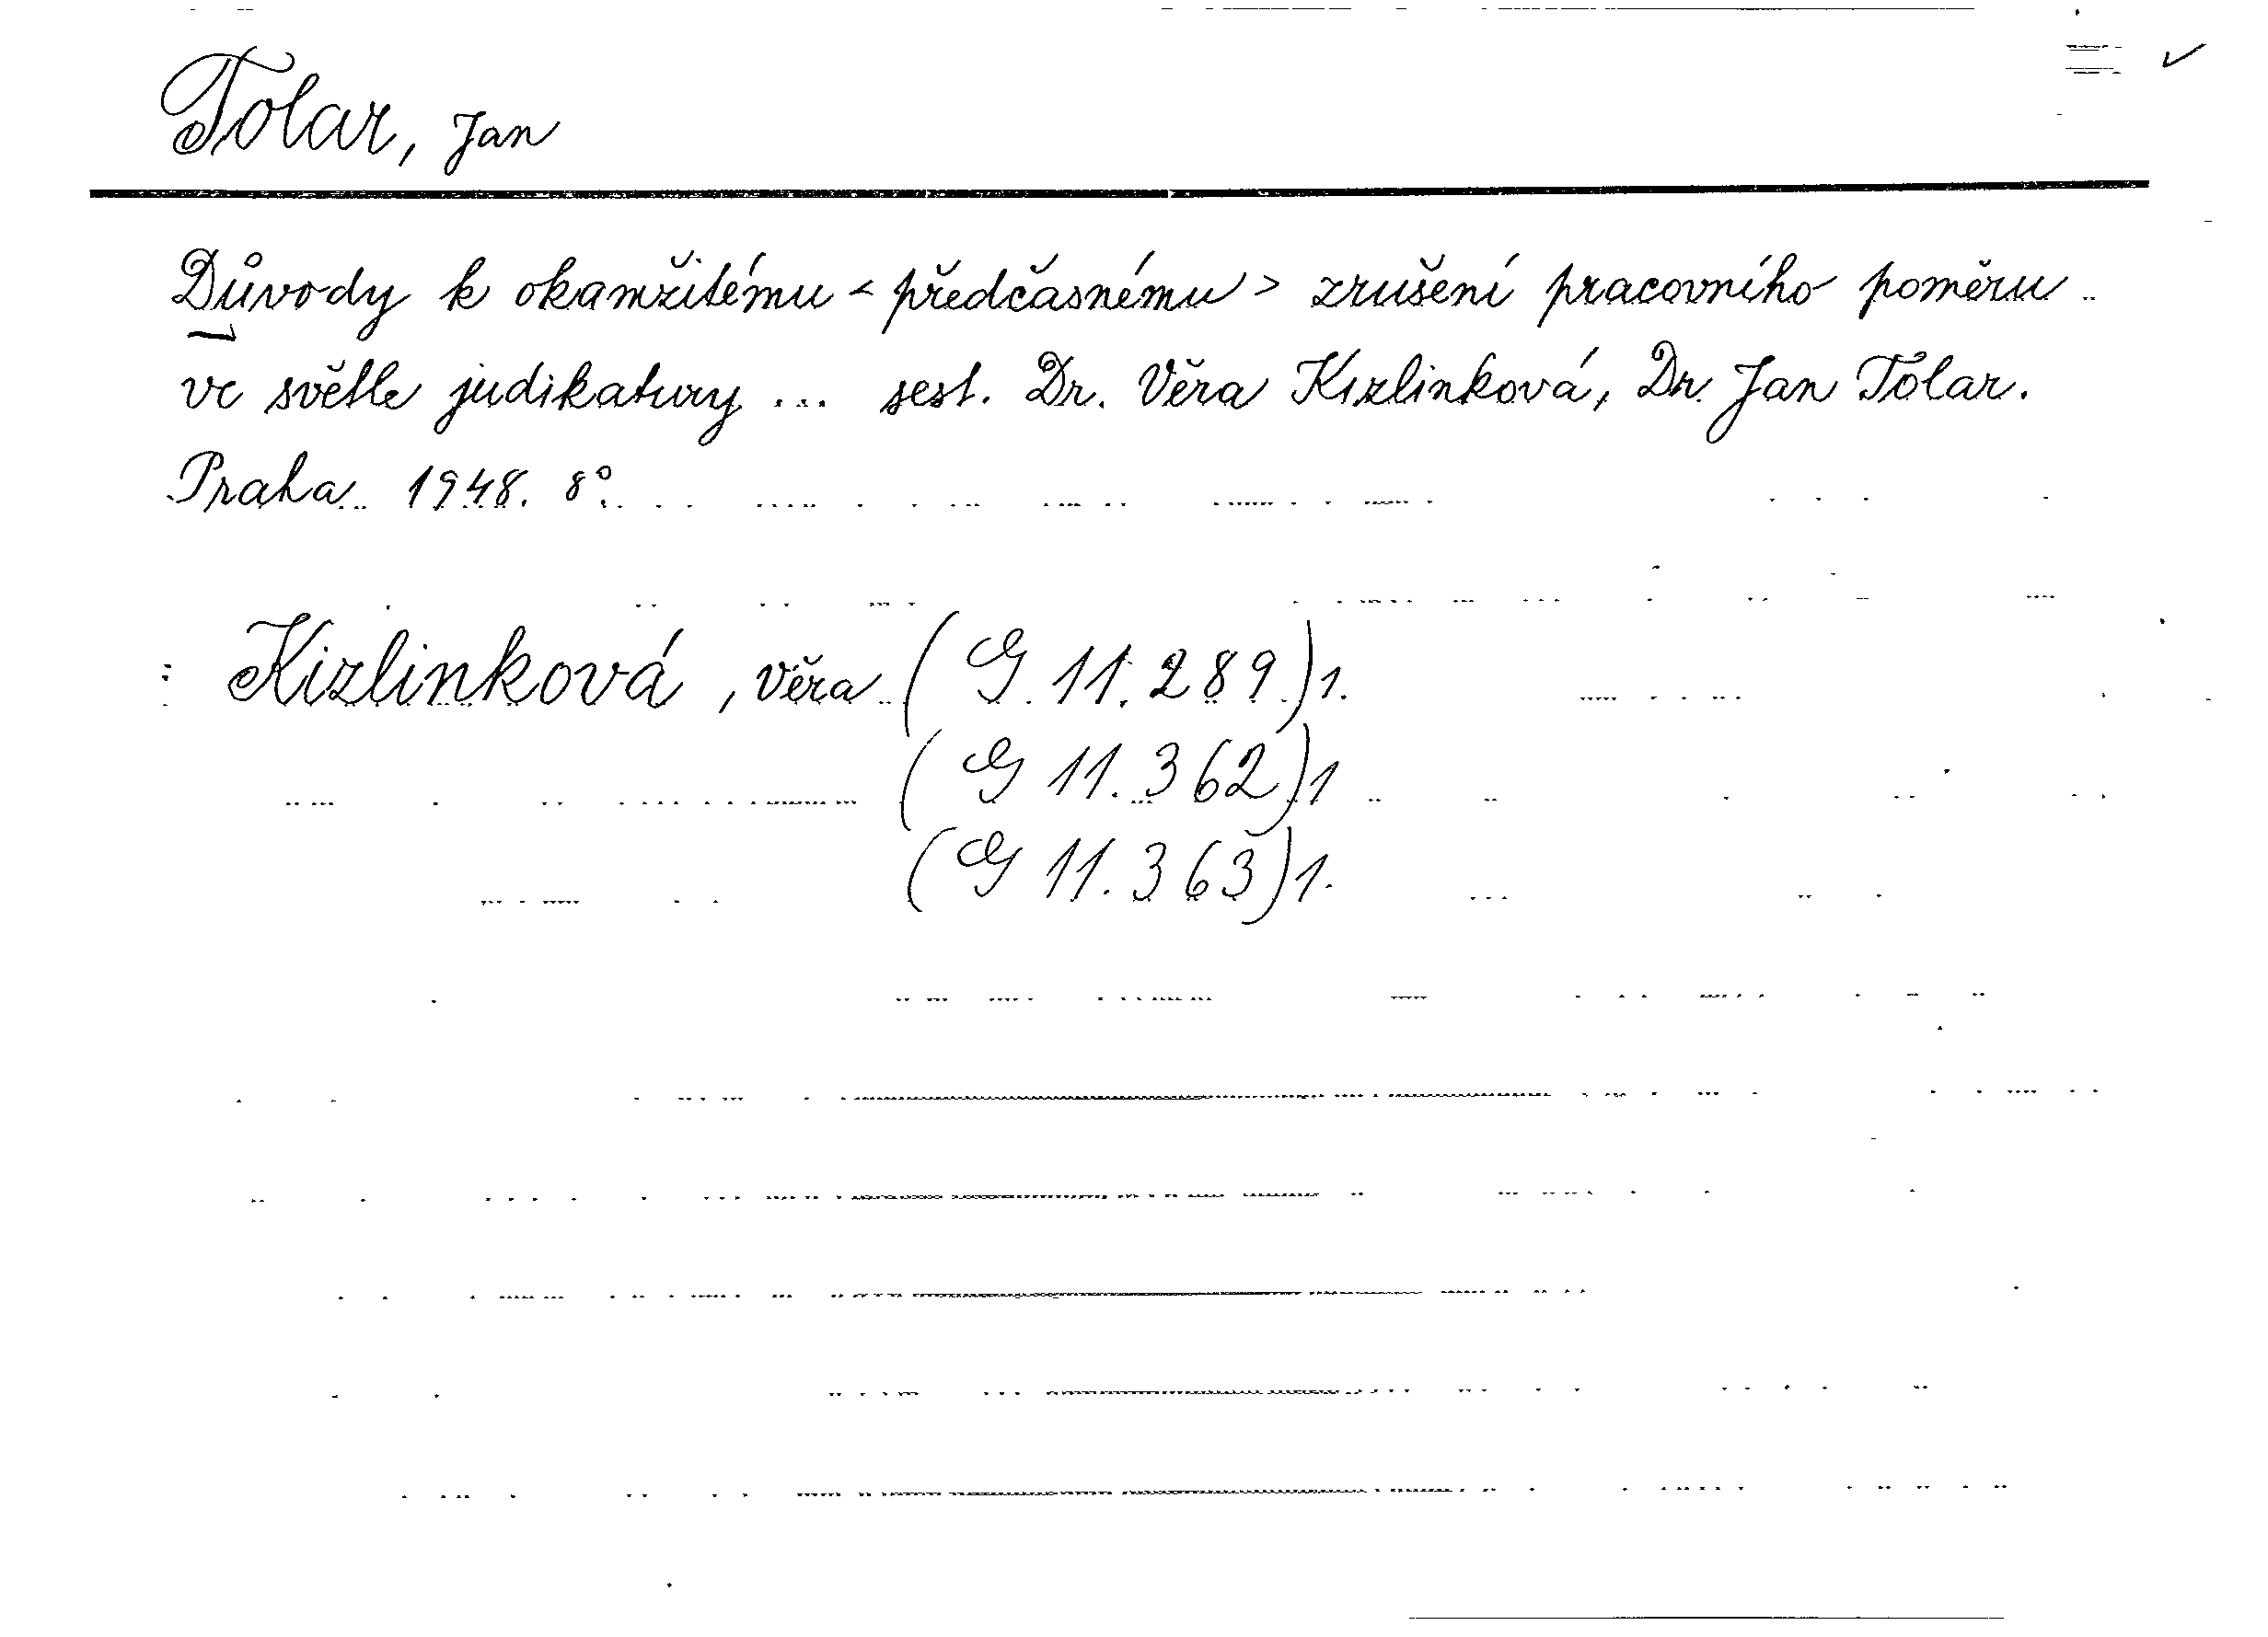 Tolar, Jan
Důvody k okamžitému < předčasnému > zrušení pracovního poměru
ve světle judikatury ... sest. Dr. Věra Kizlinková, Dr. Jan Tolar.
Praha 1948. 8°.
Kizlinková, Věra (G 11.289)1.
(G 11.362)1
(G 11.363)1.